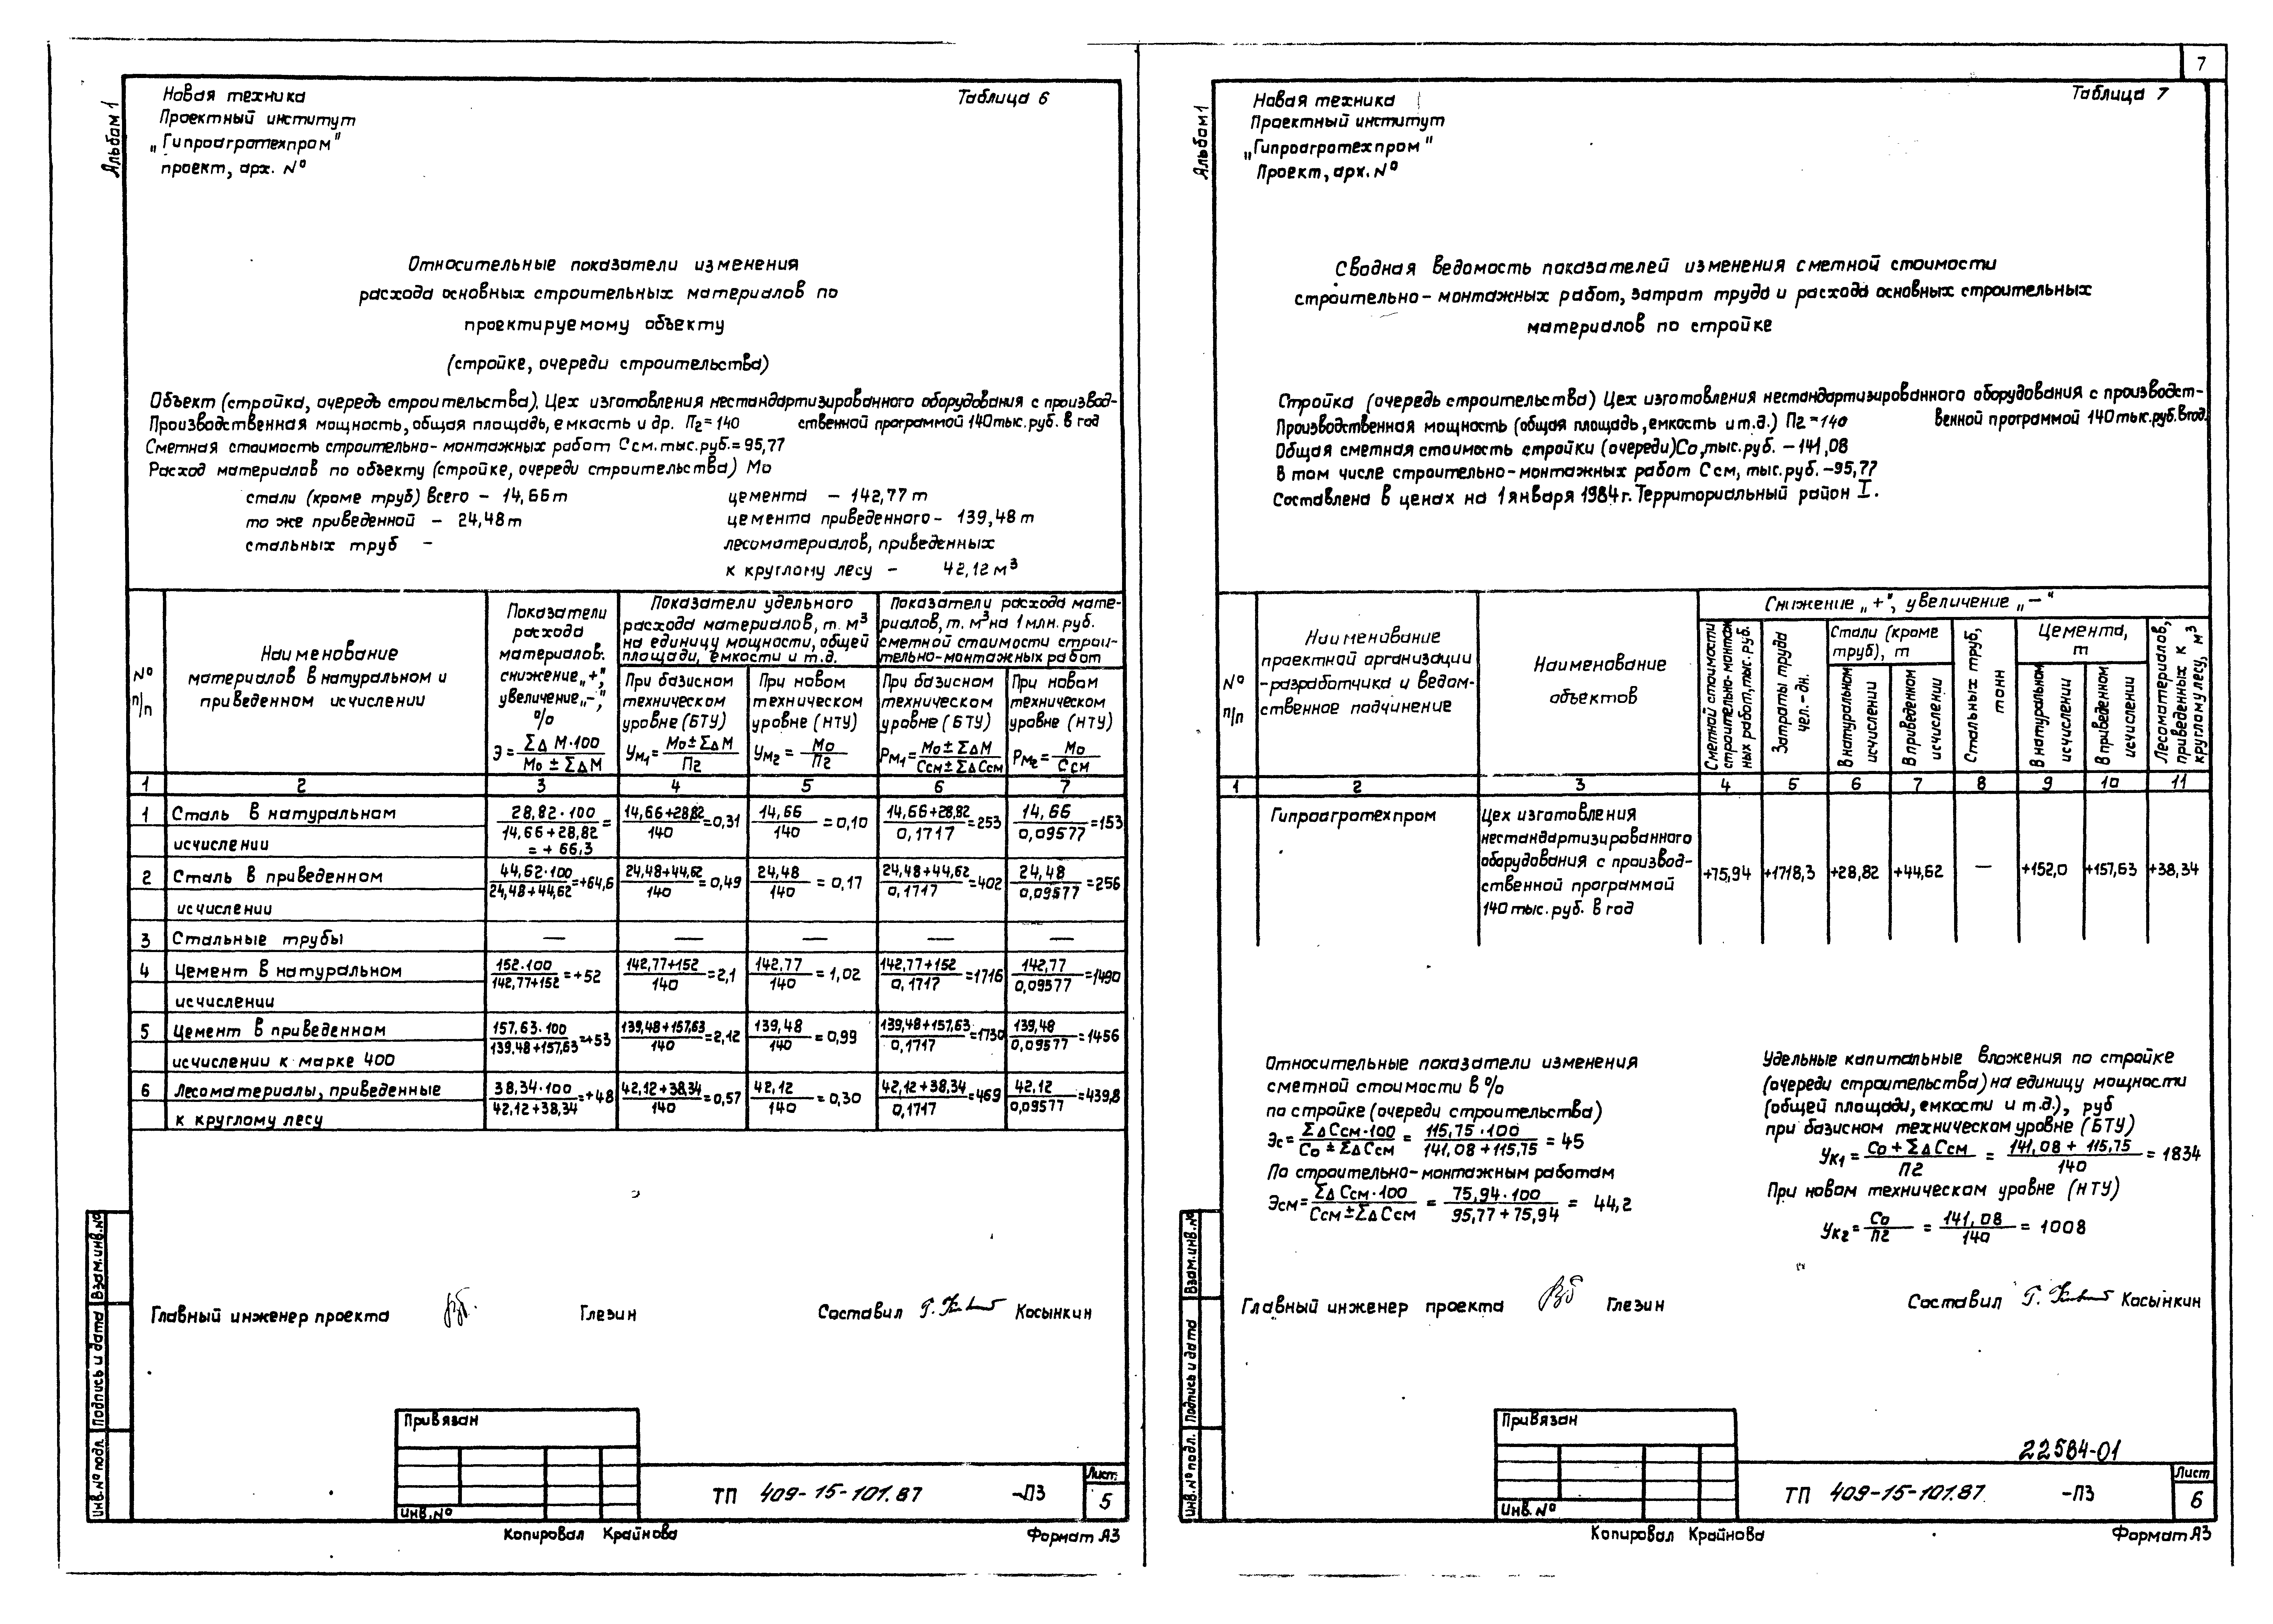 Альбом 1
Новая техника
Проектный институт
„Гипроагротехпром"
проект, арх. №
Таблица 6
Относительные показатели изменения
расхода основных строительных материалов по
проектируемому объекту
(стройке, очереди строительства)
Объект (стройка, очередь строительства). Цех изготовления нестандартизированного оборудования с производ-
ственной программой 140тыс.руб. в год
Производственная мощность, общая площадь, емкость и др. Пг=140
Сметная стоимость строительно-монтажных работ Ссм.тыс.руб.=95,77
Расход материалов по объекту (стройке, очереди строительства) Мо
стали (кроме труб) всего – 14,66т
то же приведенной – 24,48т
стальных труб –
цемента – 142,77т
цемента приведенного – 139,48т
лесоматериалов, приведенных
к круглому лесу – 42,12м³
№ п/п
Наименование
материалов в натуральном и
приведенном исчислении
Показатели
расхода
материалов:
снижение „+",
увеличение „–",
%
Э = ΣΔ М·100 / Мо ± ΣΔМ
Показатели удельного
расхода материалов, т. м³
на единицу мощности, общей
площади, емкости и т.д.
При базисном
техническом
уровне (БТУ)
Ум₁ = Мо ± ΣΔМ / Пг
При новом
техническом
уровне (НТУ)
Ум₂ = Мо / Пг
Показатели расхода мате-
риалов, т. м³ на 1 млн. руб.
сметной стоимости строи-
тельно-монтажных работ
При базисном
техническом
уровне (БТУ)
Рм₁ = Мо ± ΣΔМ / Ссм ± ΣΔСсм
При новом
техническом
уровне (НТУ)
Рм₂ = Мо / Ссм
1 2 3 4 5 6 7
1 Сталь в натуральном исчислении 28,82·100 / 14,66+28,82 = = +66,3 14,66+28,82 / 140 =0,31 14,66 / 140 =0,10 14,66+28,82 / 0,1717 =253 14,66 / 0,09577 =153
2 Сталь в приведенном исчислении 44,62·100 / 24,48+44,62 =+64,6 24,48+44,62 / 140 =0,49 24,48 / 140 =0,17 24,48+44,62 / 0,1717 =402 24,48 / 0,09577 =256
3 Стальные трубы — — — — —
4 Цемент в натуральном исчислении 152·100 / 142,77+152 =+52 142,77+152 / 140 =2,1 142,77 / 140 =1,02 142,77+152 / 0,1717 =1716 142,77 / 0,09577 =1490
5 Цемент в приведенном исчислении к марке 400 157,63·100 / 139,48+157,63 =+53 139,48+157,63 / 140 =2,12 139,48 / 140 =0,99 139,48+157,63 / 0,1717 =1730 139,48 / 0,09577 =1456
6 Лесоматериалы, приведенные к круглому лесу 38,34·100 / 42,12+38,34 =+48 42,12+38,34 / 140 =0,57 42,12 / 140 =0,30 42,12+38,34 / 0,1717 =469 42,12 / 0,09577 =439,8
Главный инженер проекта Глезин Составил Косынкин
Взам.инв.№
Подпись и дата
Инв.№ подл.
Привязан
Инв.№
ТП 409-15-101.87 -ПЗ
Лист
5
Копировал Крайнова Формат А3
7
Альбом 1
Новая техника
Проектный институт
„Гипроагротехпром"
Проект, арх. №
Таблица 7
Сводная ведомость показателей изменения сметной стоимости
строительно-монтажных работ, затрат труда и расхода основных строительных
материалов по стройке
Стройка (очередь строительства) Цех изготовления нестандартизированного оборудования с производст-
венной программой 140тыс.руб.в год.
Производственная мощность (общая площадь, емкость и т.д.) Пг=140
Общая сметная стоимость стройки (очереди) Со, тыс. руб. – 141,08
В том числе строительно-монтажных работ Ссм, тыс. руб. – 95,77
Составлена в ценах на 1 января 1984г. Территориальный район I.
№ п/п
Наименование
проектной организации
-разработчика и ведом-
ственное подчинение
Наименование
объектов
Снижение „+", увеличение „—"
Сметной стоимости
строительно-монтаж
ных работ, тыс. руб.
Затраты труда
чел.-дн.
Стали (кроме
труб), т
В натуральном
исчислении
В приведенном
исчислении
Стальных труб,
тонн
Цемента,
т
В натуральном
исчислении
В приведенном
исчислении
Лесоматериалов,
приведенных к
круглому лесу, м³
1 2 3 4 5 6 7 8 9 10 11
Гипроагротехпром
Цех изготовления
нестандартизированного
оборудования с производ-
ственной программой
140 тыс. руб. в год
+75,94 +1718,3 +28,82 +44,62 — +152,0 +157,63 +38,34
Относительные показатели изменения
сметной стоимости в %
по стройке (очереди строительства)
Эс = ΣΔ Ссм·100 / Со ± ΣΔ Ссм = 115,75·100 / 141,08+115,75 = 45
По строительно-монтажным работам
Эсм = ΣΔ Ссм·100 / Ссм ± ΣΔ Ссм = 75,94·100 / 95,77+75,94 = 44,2
Удельные капитальные вложения по стройке
(очереди строительства) на единицу мощности
(общей площади, емкости и т.д.), руб
при базисном техническом уровне (БТУ)
Ук₁ = Со + ΣΔ Ссм / Пг = 141,08 + 115,75 / 140 = 1834
При новом техническом уровне (НТУ)
Ук₂ = Со / Пг = 141,08 / 140 = 1008
Главный инженер проекта Глезин Составил Косынкин
Взам.инв.№
Подпись и дата
Инв.№ подл.
Привязан
Инв.№
22584-01
ТП 409-15-101.87 -ПЗ
Лист
6
Копировал Крайнова Формат А3